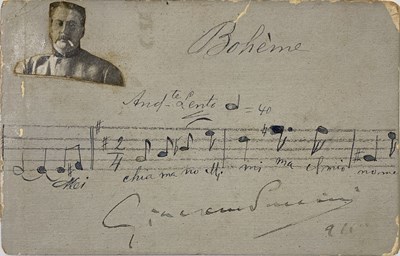 Bohème
And.te Lento = 40
2
4
Mi chia ma no Mi mi ma il mio nome
Giacomo Puccini